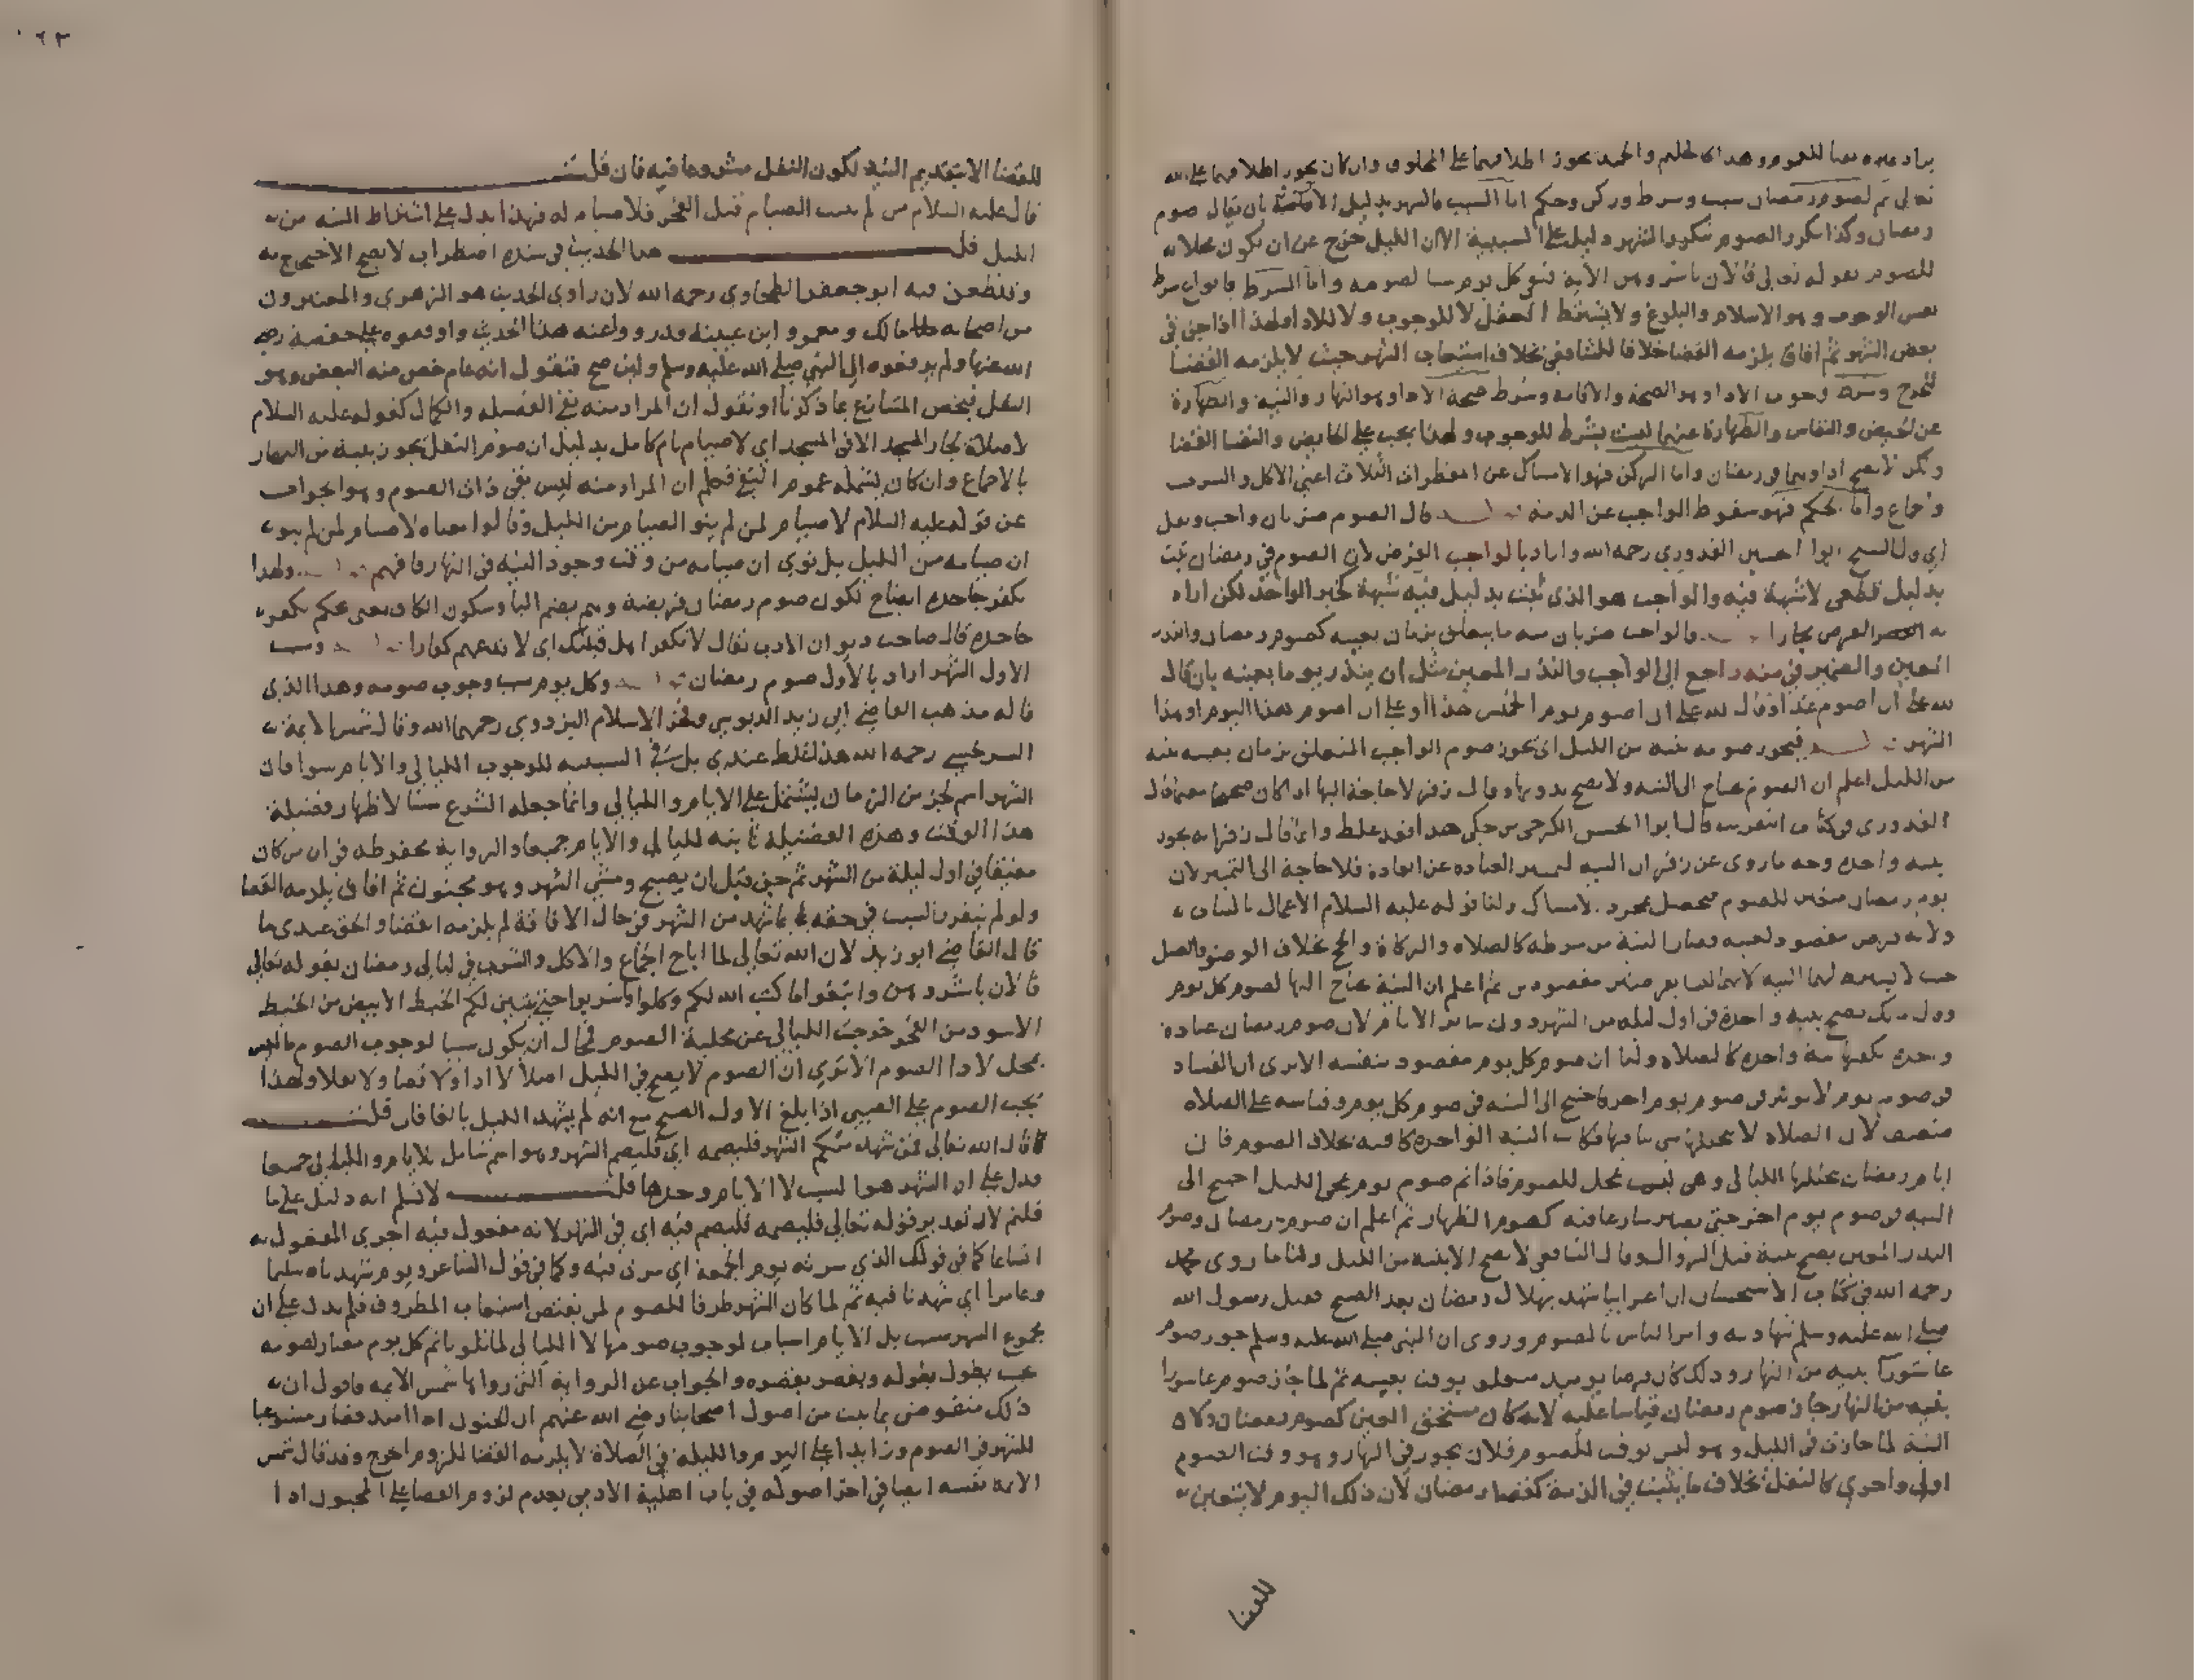 تعالى ثم لصوم رمضان سبب وشرط وركن وحكم اما السبب فالشهر بدليل الاضافة بان يقال صوم
رمضان وكذا تكرر الصوم بتكرر الشهر دليل على السببية الا ان الليل خرج عن ان يكون محلا
للصوم بقوله تعالى فالآن باشروهن الآية فبقي كل يوم سببا لصومه واما الشرط فانواع شرط
نفس الوجوب وهو الاسلام والبلوغ ولا يشترط العقل لا للوجوب ولا للاداء ولهذا اذا جن في
بعض الشهر ثم افاق يلزمه القضا خلافا للشافعي بخلاف استيعاب الشهر حيث لا يلزمه القضا
للحرج وشرط وجوب الادا وهو الصحة والاقامة وشرط صحة الادا وهو النهار والنية والطهارة
عن الحيض والنفاس والطهارة عنهما ليست بشرط للوجوب ولهذا يجب على الحايض والنفسا القضا
ولكن لا يصح اداوهما في رمضان واما الركن فهو الامساك عن المفطرات الثلاث اعني الاكل والشرب
والجماع واما الحكم فهو سقوط الواجب عن الذمة قال الصوم ضربان واجب ونفل
اي قال الشيخ ابوا الحسين القدوري رحمه الله واراد بالواجب الفرض لان الصوم في رمضان ثبت
بدليل قطعي لا شبهة فيه والواجب هو الذي ثبت بدليل فيه شبهة كخبر الواحد لكن اراد
به الفرض مجازا فالواجب ضربان منه ما يتعلق بزمان بعينه كصوم رمضان والنذر
المعين والضمير في منه راجع الى الواجب والنذر المعين مثل ان ينذر يوما بعينه بان قال
لله على ان اصوم غدا او قال لله على ان اصوم يوم الخميس هذا او على ان اصوم هذا اليوم او هذا
الشهر فيجوز صومه بنية من الليل اي يجوز صوم الواجب المتعلق بزمان بعينه بنية
من الليل اعلم ان الصوم يحتاج الى النية ولا يصح بدونها وقال زفر لا حاجة اليها اذا كان صحيحا مقيما قال
القدوري في كتاب التقريب قال ابوا الحسن الكرخي من حكى هذا فقد غلط وانما قال زفر انه يجوز
بنية واحدة وجه ما روى عن زفر ان النية لتمييز العبادة عن العادة فلا حاجة الى التمييز لان
يوم رمضان متعين للصوم فيحصل بمجرد الامساك ولنا قوله عليه السلام الاعمال بالنيات
ولانه فرض مقصود لعينه فصار النية من شرطه كالصلاة والزكاة والحج بخلاف الوضو والغسل
حيث لا يشترط لهما النية لانهما ليسا بفرضين مقصودين ثم اعلم ان النية يحتاج اليها لصوم كل يوم
وقال مالك يصح بنية واحدة في اول ليلة من الشهر دون ساير الايام لان صوم رمضان عبادة
واحدة يكفيها نية واحدة كالصلاة ولنا ان صوم كل يوم مقصود بنفسه الا ترى ان الفساد
في صوم يوم لا يوثر في صوم يوم اخر فاحتيج الى النية في صوم كل يوم وقياسه على الصلاة
ضعيف لان الصلاة لا يتخللها ما ينافيها فكانت النية الواحدة كافية بخلاف الصوم فان
ايام رمضان يتخللها الليالي وهي ليست بمحل للصوم فاذا تم صوم يوم بمجي الليل احتيج الى
النية في صوم يوم اخر حتى يصير شارعا فيه كصوم الظهار ثم اعلم ان صوم رمضان وصوم
النذر المعين يصح بنية قبل الزوال وقال الشافعي لا يصح الا بنية من الليل ولنا ما روى محمد
رحمه الله في كتاب الاستحسان ان اعرابيا شهد بهلال رمضان بعد الصبح فقبل رسول الله
صلى الله عليه وسلم شهادته وامر الناس بالصوم وروى ان النبي صلى الله عليه وسلم جوز صوم
عاشورا بنية من النهار وذلك كان فرضا يوميذ متعلق بوقت بعينه ثم لما جاز صوم عاشورا
بنية من النهار جاز صوم رمضان قياسا عليه لانه كان مستحق العين كصوم رمضان ولان
النية لما جازت في الليل وهو ليس بوقت للصوم فلان يجوز في النهار وهو وقت الصوم
اولى واحرى كالنفل بخلاف ما يثبت في الذمة كقضاء رمضان لان ذلك اليوم لا يتعين
للقضا
٦٣
للقضا الا بتقديم النية لكون النفل مشروعا فيه فان قلت
قال عليه السلام من لم يبيت الصيام قبل الفجر فلا صيام له فهذا يدل على اشتراط النية من
الليل قلت هذا الحديث في سنده اضطراب لا يصح الاحتجاج به
وقد طعن فيه ابو جعفر الطحاوي رحمه الله لان راوي الحديث هو الزهري والمعتبرون
من اصحابه مالك ومعمر وابن عيينة قد رووا عنه هذا الحديث واوقفوه على حفصة رضي
الله عنها ولم يرفعوه الى النبي صلى الله عليه وسلم ولين صح فنقول انه عام خص منه البعض وهو
النفل فيخص المتنازع بما ذكرنا او نقول ان المراد منه نفي الفضيلة والكمال كقوله عليه السلام
لا صلاة لجار المسجد الا في المسجد اي لا صيام تام كامل بدليل ان صوم النفل يجوز بنية من النهار
بالاجماع وان كان يشمله عموم النفي فعلم ان المراد منه ليس نفي ذات الصوم وهو الجواب
عن قوله عليه السلام لا صيام لمن لم ينو الصيام من الليل وقالوا معناه لا صيام لمن لم ينو
ان صيامه من الليل بل نوى ان صيامه من وقت وجود النية في النهار فافهم ولهذا
يكفر جاحده ايضاح لكون صوم رمضان فريضة وهو بضم اليا وسكون الكاف يعني يحكم بكفر
جاحده قال صاحب ديوان الادب يقال لا تكفر اهل قبلتك اي لا تدعهم كفارا وسبب
الاول الشهر اراد بالاول صوم رمضان وكل يوم سبب وجوب صومه وهذا الذي
قاله مذهب القاضي ابي زيد الدبوسي وفخر الاسلام البزدوي رحمهما الله وقال شمس الايمة
السرخسي رحمه الله هذا غلط عندي بل في السببية للوجوب الليالي والايام سوا فان
الشهر اسم لجز من الزمان يشتمل على الايام والليالي وانما جعله الشرع سببا لاظهار فضيلة
هذا الوقت وهذه الفضيلة ثابتة لليالي والايام جميعا والرواية محفوظة في ان من كان
مفيقا في اول ليلة من الشهر ثم جن قبل ان يصبح ومضى الشهر وهو مجنون ثم افاق يلزمه القضا
ولو لم يتقرر السبب في حقه بما شهد من الشهر في حال الافاقة لم يلزمه القضا والحق عندي ما
قال القاضي ابو زيد لان الله تعالى لما اباح الجماع والاكل والشرب في ليالي رمضان بقوله تعالى
فالآن باشروهن وابتغوا ما كتب الله لكم وكلوا واشربوا حتى يتبين لكم الخيط الابيض من الخيط
الاسود من الفجر خرجت الليالي عن محلية الصوم فمحال ان يكون سببا لوجوب الصوم ما ليس
بمحل لادا الصوم الا ترى ان الصوم لا يصح في الليل اصلا لا ادا ولا قضا ولا نفلا ولهذا
يجب الصوم على الصبي اذا بلغ الاول الصبح مع انه لم يشهد الليل بالغا فان قلت
قال الله تعالى فمن شهد منكم الشهر فليصمه اي فليصم الشهر وهو اسم شامل للايام والليالي جميعا
فدل على ان الشهر هو السبب لا الايام وحدها قلت لا نسلم انه دليل على ما
قلتم لان تقدير قوله تعالى فليصمه فليصم فيه اي في الشهر لانه مفعول فيه اجرى المفعول به
اتساعا كما في قولك الذي سرته يوم الجمعة اي سرت فيه وكما في قول الشاعر ويوم شهدناه سليما
وعامرا اي شهدنا فيه ثم لما كان الشهر ظرفا للصوم لم يقتض استيعاب المظروف فلم يدل على ان
مجموع الشهر سبب بل الايام اسباب لوجوب صومها لا الليالي لما تلونا ثم كل يوم معيار لصومه
بحيث يطول بطوله ويقصر بقصره والجواب عن الرواية التي رواها شمس الايمة فاقول ان
ذلك منقوض بما ثبت من اصول اصحابنا رضي الله عنهم ان الجنون اذا امتد فصار مستوعبا
للشهر في الصوم وزايدا على اليوم والليلة في الصلاة لا يلزمه القضا للزوم الحرج وقد قال شمس
الايمة نفسه ايضا في اخر اصوله في باب اهلية الادمي بعدم لزوم القضا على المجنون اذا